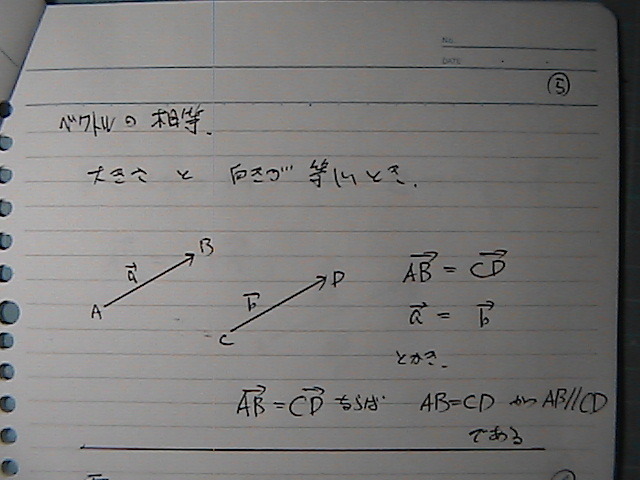 NO.
DATE
⑤
ベクトルの相等.
大きさと向きが等しいとき.
B
a→
A
D
b→
C
AB→ = CD→
a→ = b→
とかき.
AB→ = CD→ ならば AB=CD かつ AB//CD
である